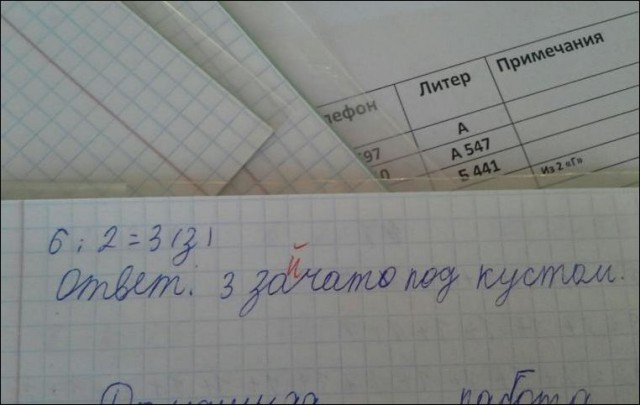 лефон Литер Примечания
А
97 А 547
0 Б 441 Из 2 «Г»
6 : 2 = 3 (з)
Ответ: 3 зайчато под кустом.
работа